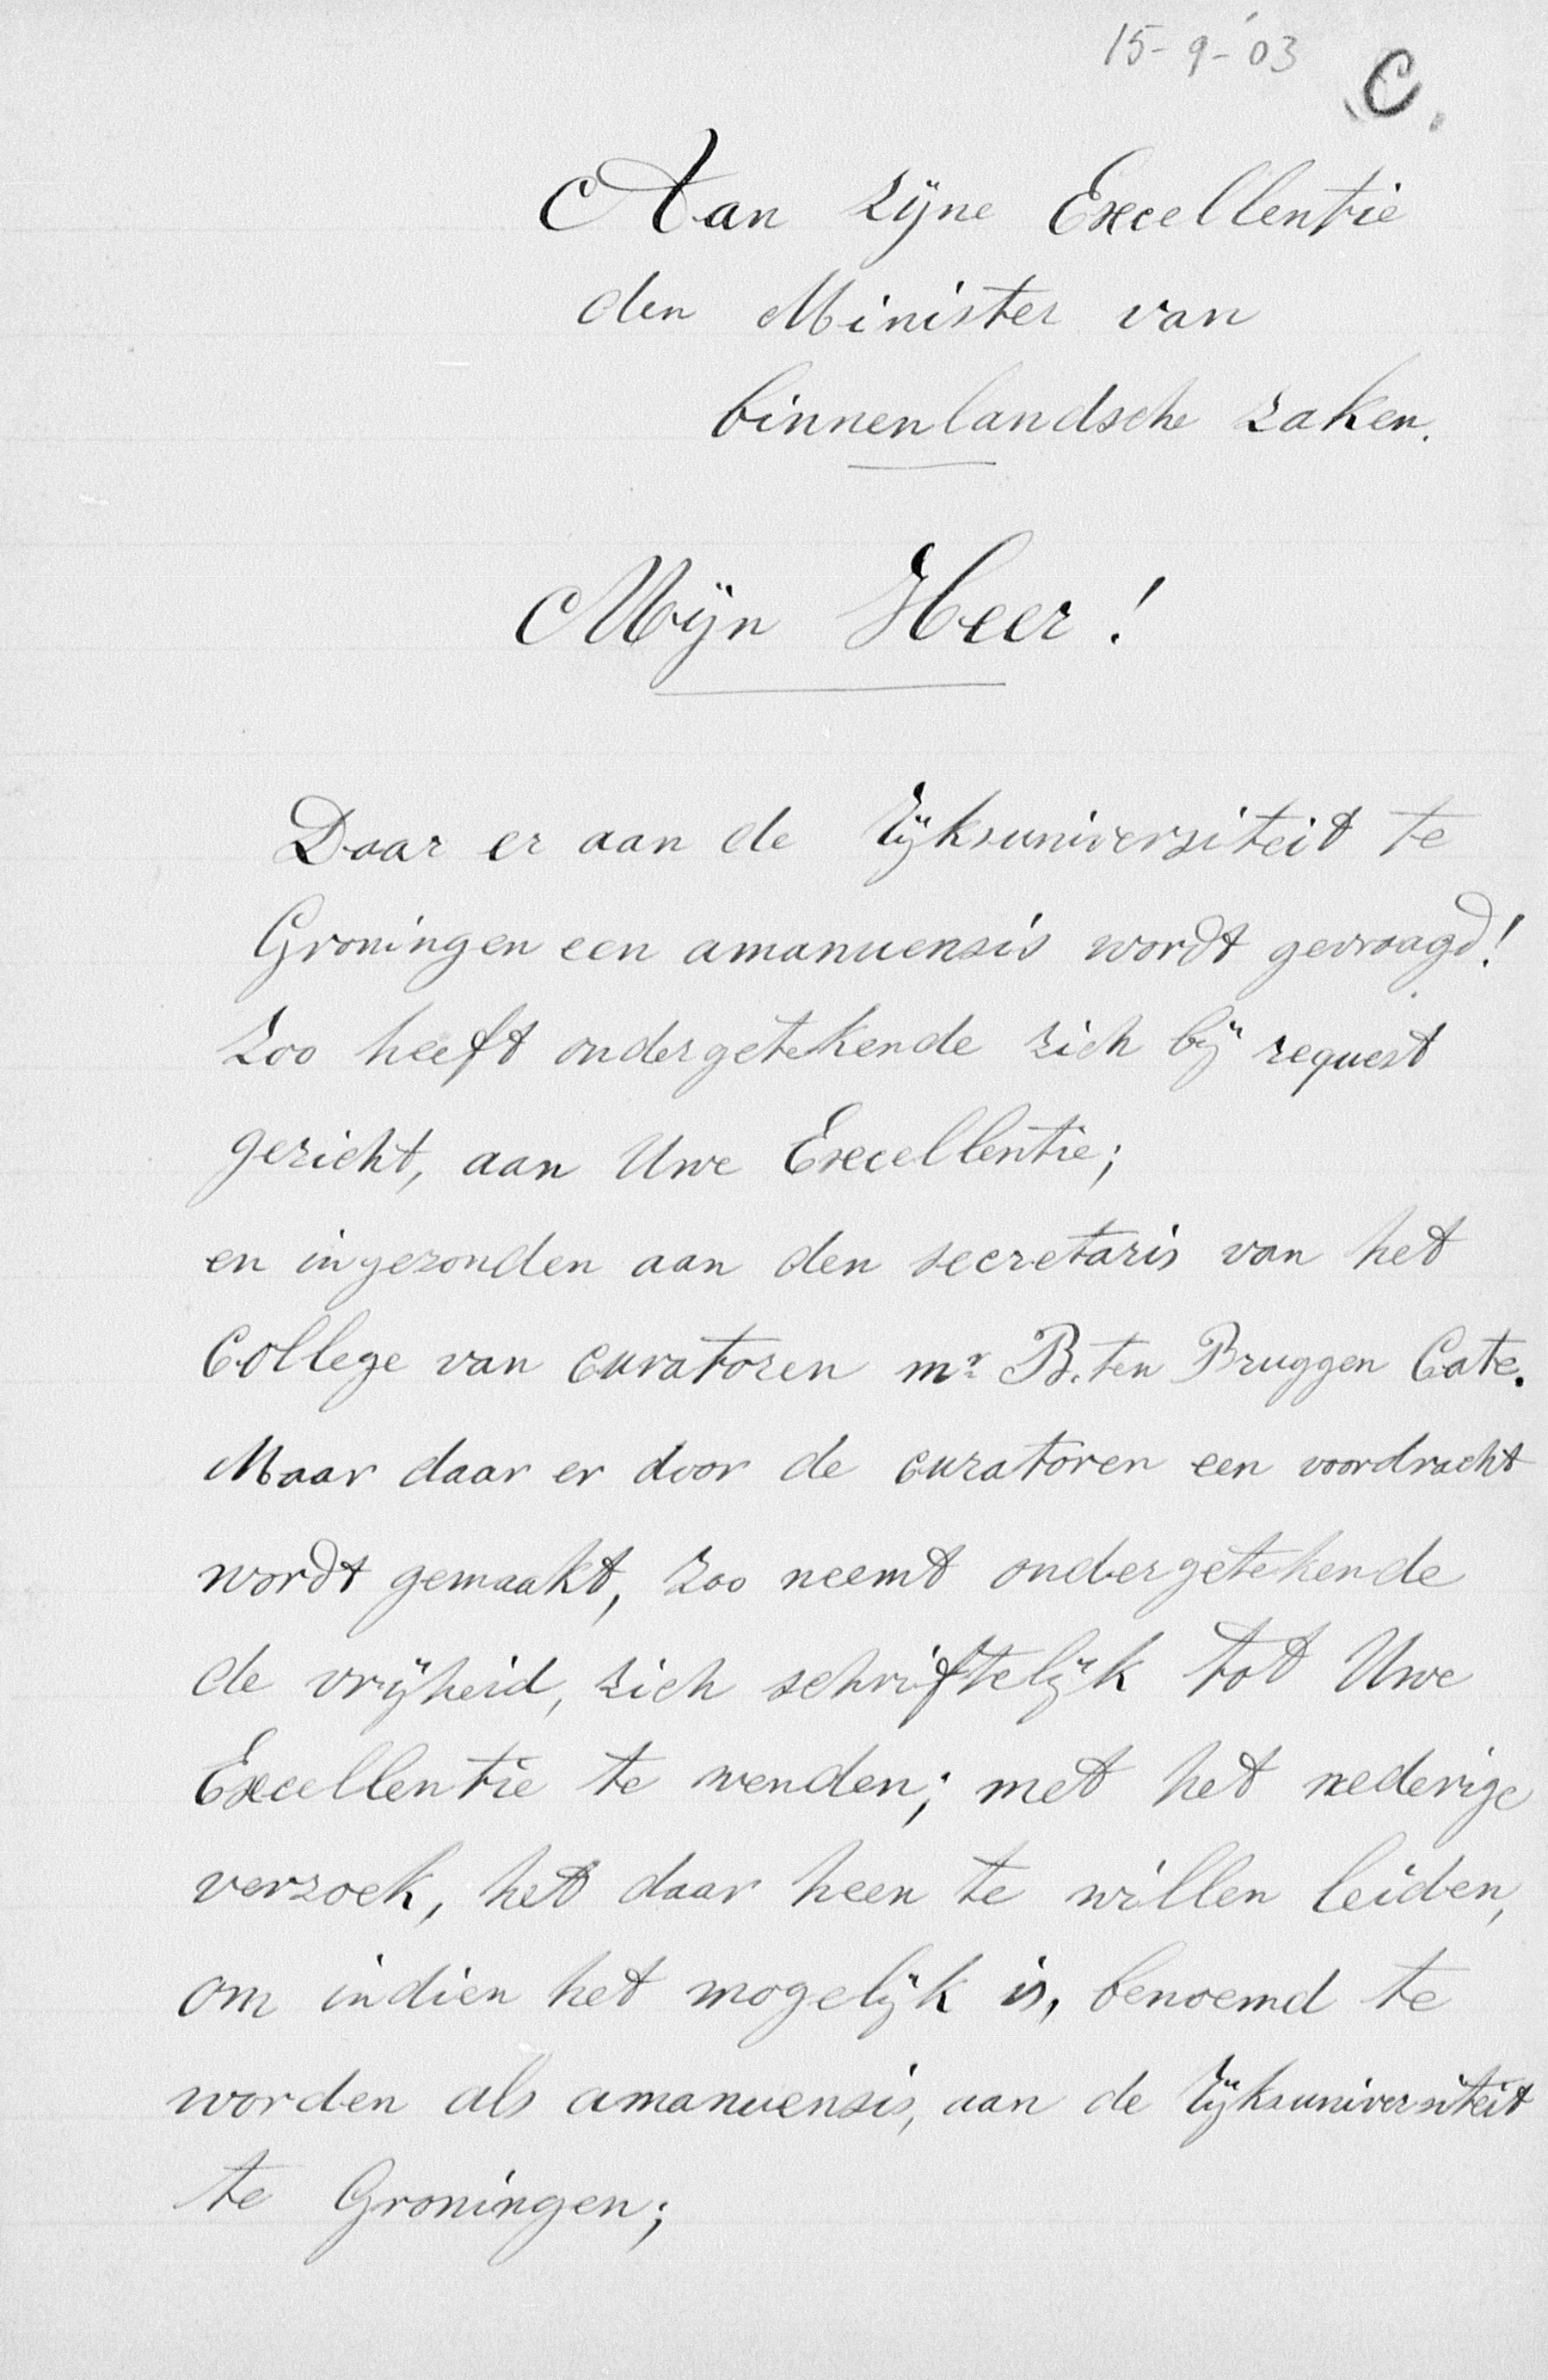 15-9-'03 C.
Aan zijne Excellentie
den Minister van
binnenlandsche zaken.
Mijn Heer!
Daar er aan de rijksuniversiteit te
Groningen een amanuensis wordt gevraagd!
Zoo heeft ondergetekende zich bij request
gericht, aan Uwe Excellentie;
en ingezonden aan den secretaris van het
College van curatoren mr B. ten Bruggen Cate.
Maar daar er door de curatoren een voordracht
wordt gemaakt, zoo neemt ondergetekende
de vrijheid, zich schriftelijk tot Uwe
Excellentie te wenden; met het nederige
verzoek, het daar heen te willen leiden,
om indien het mogelijk is, benoemd te
worden als amanuensis, aan de rijksuniversiteit
te Groningen;